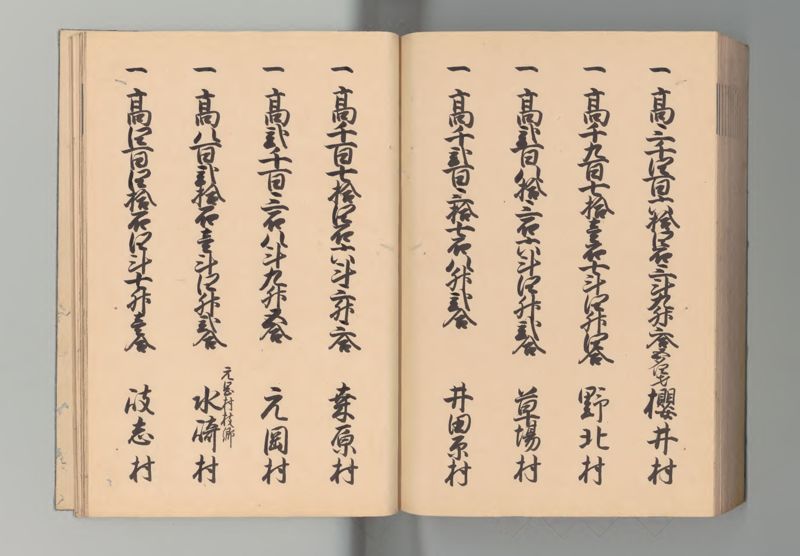 一 高三千四百六拾四石三斗九升六合 櫻井村
一 高千九百七拾壱石七斗四升四合 野北村
一 高弐百八拾三石六斗四升弐合 草場村
一 高千弐百六拾七石八升弐合 井田原村
一 高千百七拾四石六斗六升六合 桑原村
一 高弐千百三石八斗九升五合 元岡村
一 高八百弐拾石壱斗四升弐合 元岡村枝郷 水崎村
一 高四百四拾石四斗七升壱合 岐志村